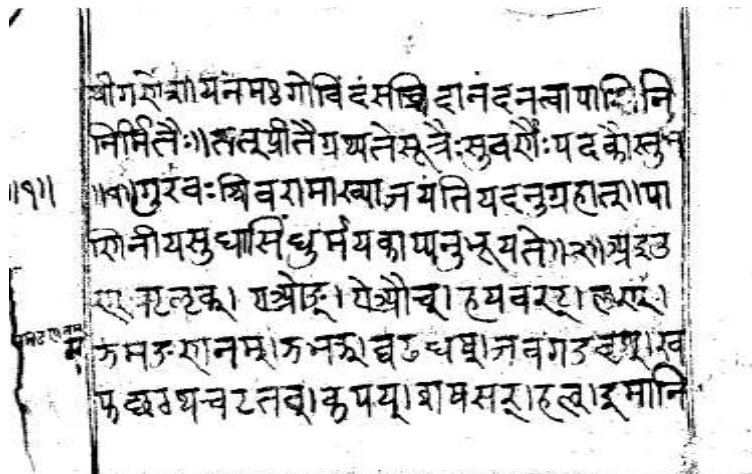 श्रीगणेशायनमः गोविंदंसच्चिदानंदंनत्वापाणिनि
निर्मितैः॥तत्प्रीतैग्रथ्यतेसूत्रैःसुवर्णैःपदकौस्तुभ
॥१॥ ॥१॥गुरवःशिवरामाख्याजयंतियदनुग्रहात्॥पा
णिनीयसुधासिंधुर्मयकाप्यनुभूयते॥२॥अइउ
ण् ऋऌक्। एओङ्। ऐऔच्। हयवरट्। लण्।
ञमङणनम्। झभञ्। घढधष्। जबगडदश्। ख
फछठथचटतव्। कपय्। शषसर्। हल्। इमानि